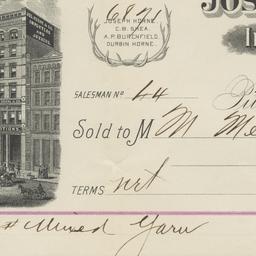 6821
JOS
JOSEPH HORNE.
C.B. SHEA.
A.P. BURCHFIELD.
DURBIN HORNE.
SALESMAN No 44
Pi
Sold to M M Me
TERMS net
Mixed Yarn